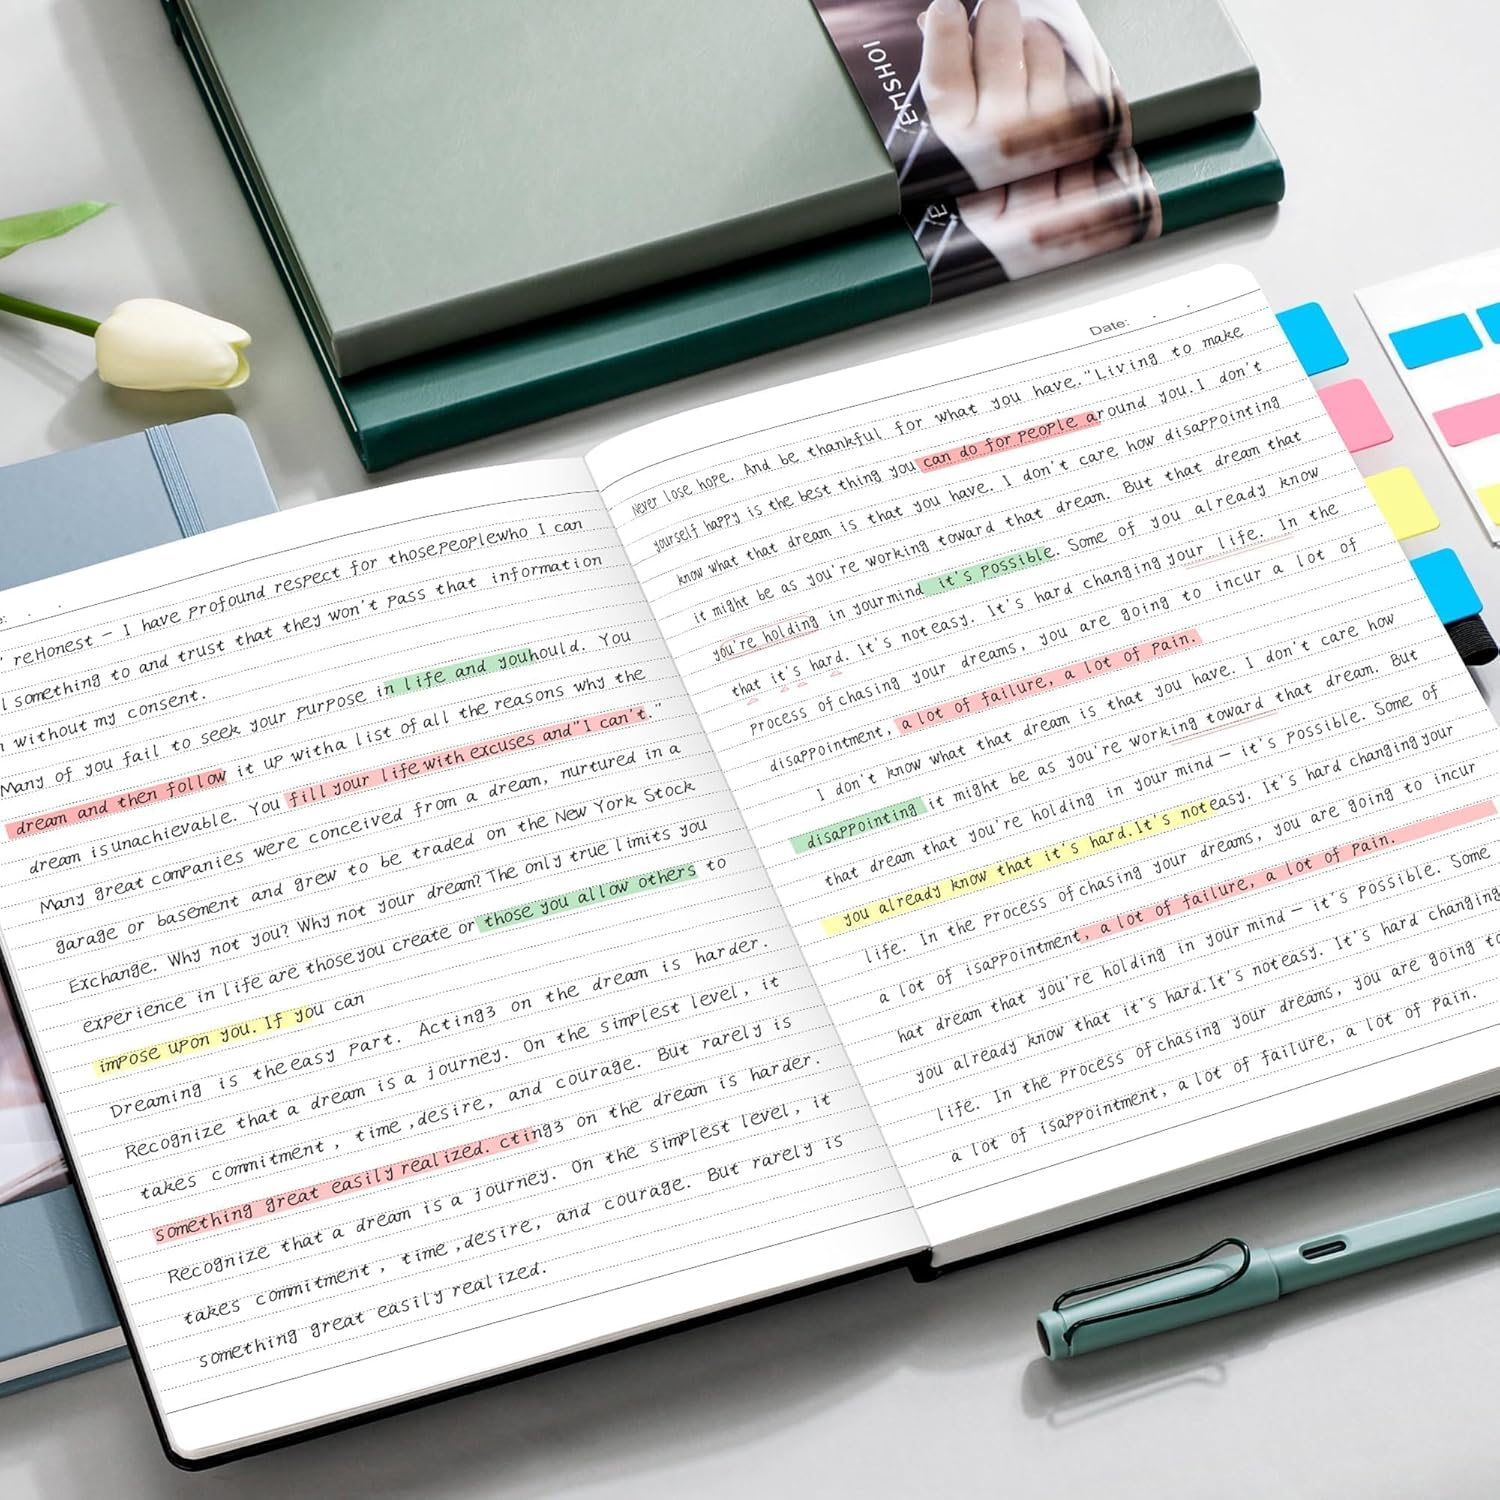 EMSHOI
Date:
' reHonest - I have profound respect for thosePeoplewho I can
l something to and trust that they won't pass that information
without my consent.
Many of you fail to seek your purpose in life and youhould. You
dream and then follow it up witha list of all the reasons why the
dream isunachievable. You fill your life with excuses and "I can't."
Many great companies were conceived from a dream, nurtured in a
garage or basement and grew to be traded on the New York Stock
Exchange. Why not you? Why not your dream? The only true limits you
experience in life are thoseyou create or those you allow others to
impose upon you. If you can
Dreaming is theeasy part. Acting3 on the dream is harder.
Recognize that a dream is a journey. On the simplest level, it
takes commitment, time ,desire, and courage. But rarely is
something great easily realized. cting3 on the dream is harder.
Recognize that a dream is a journey. On the simplest level, it
takes commitment, time ,desire, and courage. But rarely is
something great easily realized.
Never lose hope. And be thankful for what you have."Living to make
yourself happy is the best thing you can do for people around you.I don't
know what that dream is that you have. I don't care how disappointing
it might be as you're working toward that dream. But that dream that
you're holding in yourmind it's possible. Some of you already know
that it's hard. It's noteasy. It's hard changing your life. In the
process of chasing your dreams, you are going to incur a lot of
disappointment, a lot of failure, a lot of pain.
I don't know what that dream is that you have. I don't care how
disappointing it might be as you're working toward that dream. But
that dream that you're holding in your mind - it's possible. Some of
you already know that it's hard.It's noteasy. It's hard changing your
life. In the process of chasing your dreams, you are going to incur
a lot of isappointment, a lot of failure, a lot of pain.
hat dream that you're holding in your mind - it's possible. Some
you already know that it's hard.It's noteasy. It's hard changing
life. In the process of chasing your dreams, you are going to
a lot of isappointment, a lot of failure, a lot of pain.